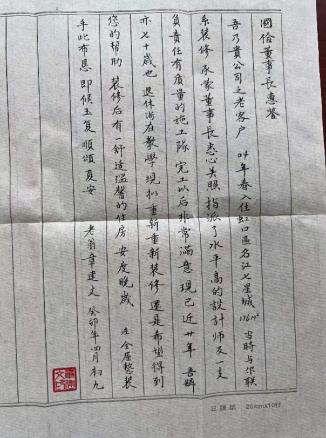 國儉董事長惠鑒
吾乃貴公司之老客户 04年春入住虹口區名江七星城 176m² 當時与你联
系装修 承蒙董事長悉心关照 指派了水平高的設计师及一支
負責任有质量的施工隊 完工以后非常滿意 現已近廿年 吾
亦七十歲也 退休尚在教學 現拟重新重新装修 還是希望得到
您的帮助 装修后有一舒适溫馨的住房 安度晚歲 注 全屋整装
专此布恳 即候玉复 順頌夏安
老翁章建文 癸卯年四月初九